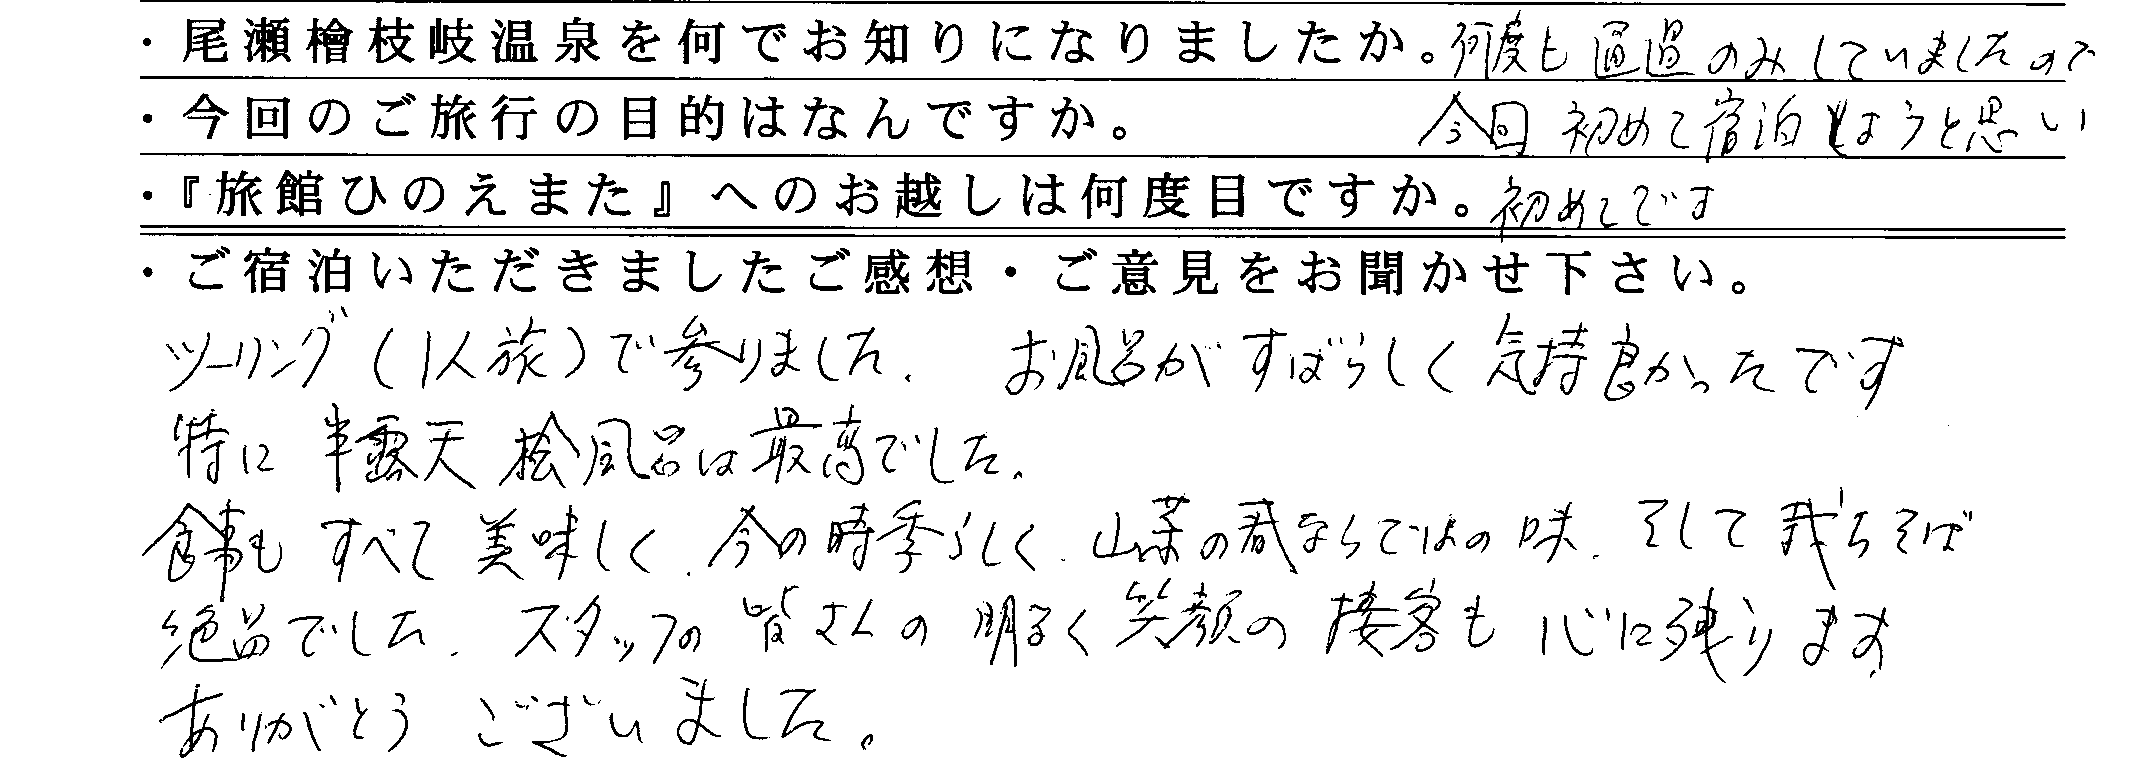 ・尾瀬檜枝岐温泉を何でお知りになりましたか。何度も通過のみしていましたので
・今回のご旅行の目的はなんですか。今回初めて宿泊しようと思い
・『旅館ひのえまた』へのお越しは何度目ですか。初めてです
・ご宿泊いただきましたご感想・ご意見をお聞かせ下さい。
ツーリング(1人旅)で参りました。 お風呂がすばらしく気持良かったです
特に 半露天 桧風呂は最高でした。
食事も すべて 美味しく、今の時季らしく、山菜の春ならではの味、そして 裁ちそば
絶品でした。スタッフの 皆さんの 明るく笑顔の 接客も 心に残ります
ありがとう ございました。